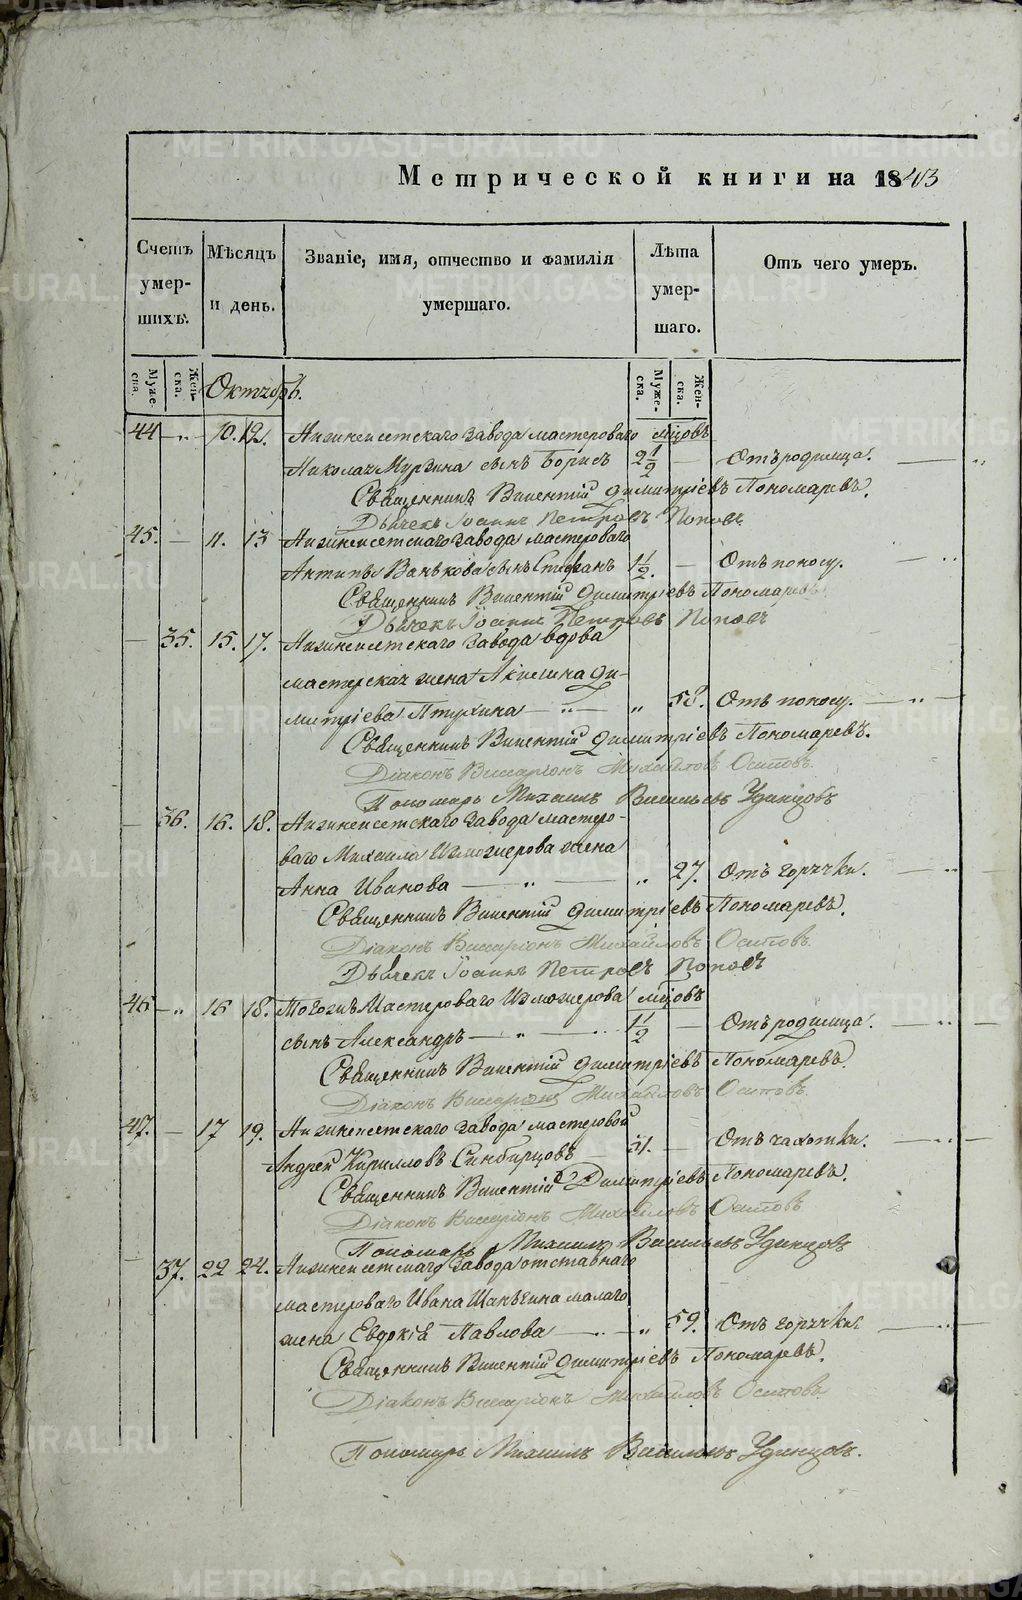 Метрической книги на 1843
Счетъ умершихъ.
Мѣсяцъ и день.
Званіе, имя, отчество и фамилія умершаго.
Лѣта умершаго.
Отъ чего умеръ.
Мужеска. Женска. Октябрь. Мужеска. Женска.
44 — „ — 10. 12. Нижнеисетскаго завода мастероваго мѣсяцовъ
Николая Мургина сынъ Борисъ 2 1/2 — Отъ родимца. — „
Священникъ Викентій Димитріевъ Пономаревъ.
Дьячекъ Іоаннъ Петровъ Поповъ
45. — 11. 13 Нижнеисетскаго завода мастероваго
Антипы Ванькова сынъ Стефанъ 1 1/2. — Отъ поносу. — „
Священникъ Викентій Димитріевъ Пономаревъ
Дьячекъ Іоаннъ Петровъ Поповъ
— 35. 15. 17. Нижнеисетскаго завода вдова
мастерская жена Акилина Ди-
митріева Птухина — „ — „ 58. Отъ поносу. — „ —
Священникъ Викентій Димитріевъ Пономаревъ.
Діаконъ Виссаріонъ Михайловъ Осиповъ.
Пономарь Михаилъ Васильевъ Удинцовъ
— 36. 16. 18. Нижнеисетскаго завода мастеро-
ваго Михаила Изможерова жена
Анна Иванова — „ — „ 27. Отъ горячки. — „
Священникъ Викентій Димитріевъ Пономаревъ.
Діаконъ Виссаріонъ Михайловъ Осиповъ.
Дьячекъ Іоаннъ Петровъ Поповъ
46 — „ 16 18. Тогожъ Мастероваго Изможерова мѣсяцовъ
сынъ Александръ — „ — 1 1/2 — Отъ родимца. — „ —
Священникъ Викентій Димитріевъ Пономаревъ.
Діаконъ Виссаріонъ Михайловъ Осиповъ.
47. — 17 19. Нижнеисетскаго завода мастеровой
Андрей Кирилловъ Синбирцовъ — 31. — Отъ чахотки. — „ —
Священникъ Викентій Димитріевъ Пономаревъ.
Діаконъ Виссаріонъ Михайловъ Осиповъ
Пономарь Михаилъ Васильевъ Удинцовъ
37. 22 24. Нижнеисетскаго завода отставнаго
мастероваго Ивана Шанъгина малаго
жена Евдокія Павлова — „ — „ 59. Отъ горячки. — „ —
Священникъ Викентій Димитріевъ Пономаревъ.
Діаконъ Виссаріонъ Михайловъ Осиповъ
Пономарь Михаилъ Васильевъ Удинцовъ.
METRIKI.GASO-URAL.RU